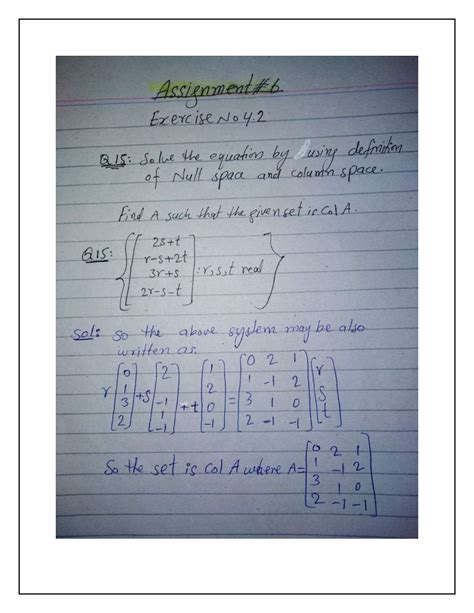 Assignment #6
Exercise No 4.2
Q15: Solve the equation by using definition
of Null space and column space.
Find A such that the given set is Col A.
Q15: { [ 2s+t
r-s+2t
3r+s
2r-s-t ] : r,s,t real }
Sol: So the above system may be also
written as.
r [0 1 3 2] + s [2 -1 1 -1] + t [1 2 0 -1] = [0 2 1
1 -1 2
3 1 0
2 -1 -1] [r s t]
So the set is Col A where A = [0 2 1
1 -1 2
3 1 0
2 -1 -1]